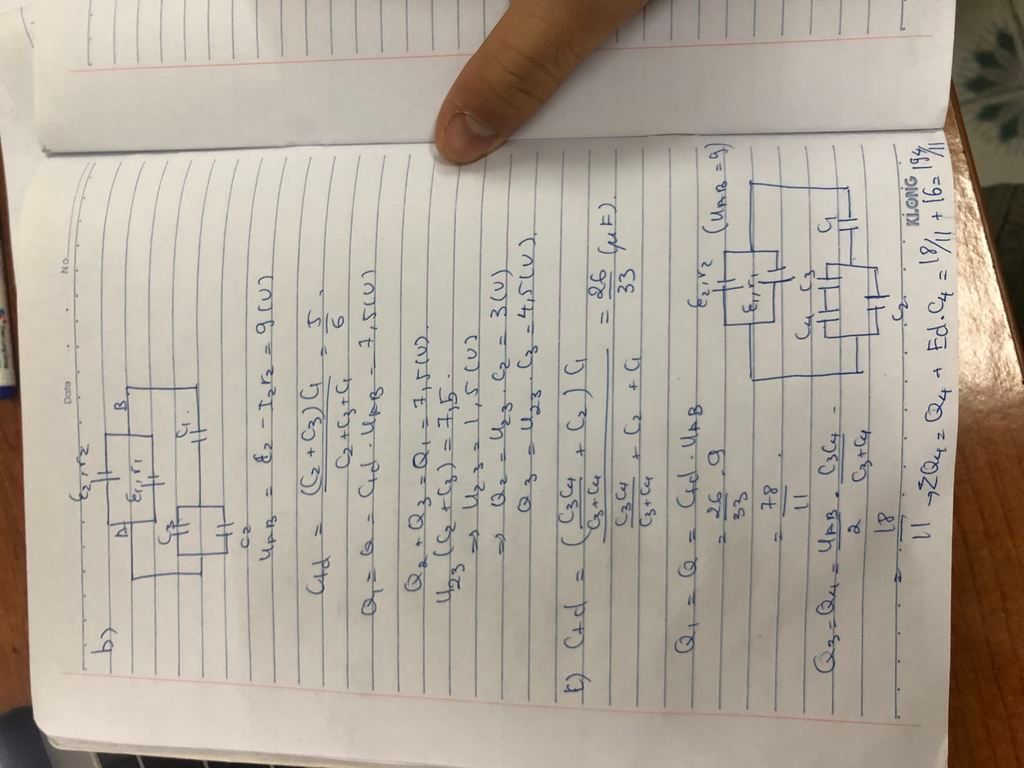 Date
No.
b)
E₂, r₂
A
B
E₁, r₁
C₃
C₁
C₂
U_AB = E₂ - I₂r₂ = 9 (V)
Ctđ = (C₂ + C₃)C₁ / C₂ + C₃ + C₁ = 5/6
Q₁ = Q = Ctđ . U_AB = 7,5 (V)
Q₂ + Q₃ = Q₁ = 7,5 (V).
U₂₃ (C₂ + C₃) = 7,5
=> U₂₃ = 1,5 (V)
=> Q₂ = U₂₃ . C₂ = 3 (V)
Q₃ = U₂₃ . C₃ = 4,5 (V)
Ctđ = (C₃C₄ / C₃+C₄ + C₂) C₁ / C₃C₄ / C₃+C₄ + C₂ + C₁ = 26/33 (μF)
Q₁ = Q = Ctđ . U_AB
= 26/33 . 9
= 78/11
E₂, r₂ (U_AB = 9)
E₁, r₁
C₄ C₃
C₁
C₂
Q₃ = Q₄ = U_AB / 2 . C₃C₄ / C₃+C₄
= 18/11 → ΣQ₄ = Q₄ + Ed . C₄ = 18/11 + 16 = 194/11
KLONG